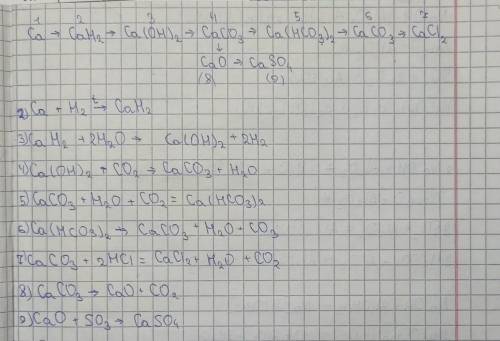 1 2 3 4 5 6 7
Ca → CaH₂ → Ca(OH)₂ → CaCO₃ → Ca(HCO₃)₂ → CaCO₃ → CaCl₂
↓
CaO → CaSO₄
(8) (9)
2) Ca + H₂ →ᵗ CaH₂
3) CaH₂ + 2H₂O → Ca(OH)₂ + 2H₂
4) Ca(OH)₂ + CO₂ → CaCO₃ + H₂O
5) CaCO₃ + H₂O + CO₂ = Ca(HCO₃)₂
6) Ca(HCO₃)₂ → CaCO₃ + H₂O + CO₃
7) CaCO₃ + 2HCl = CaCl₂ + H₂O + CO₂
8) CaCO₃ → CaO + CO₂
9) CaO + SO₃ → CaSO₄